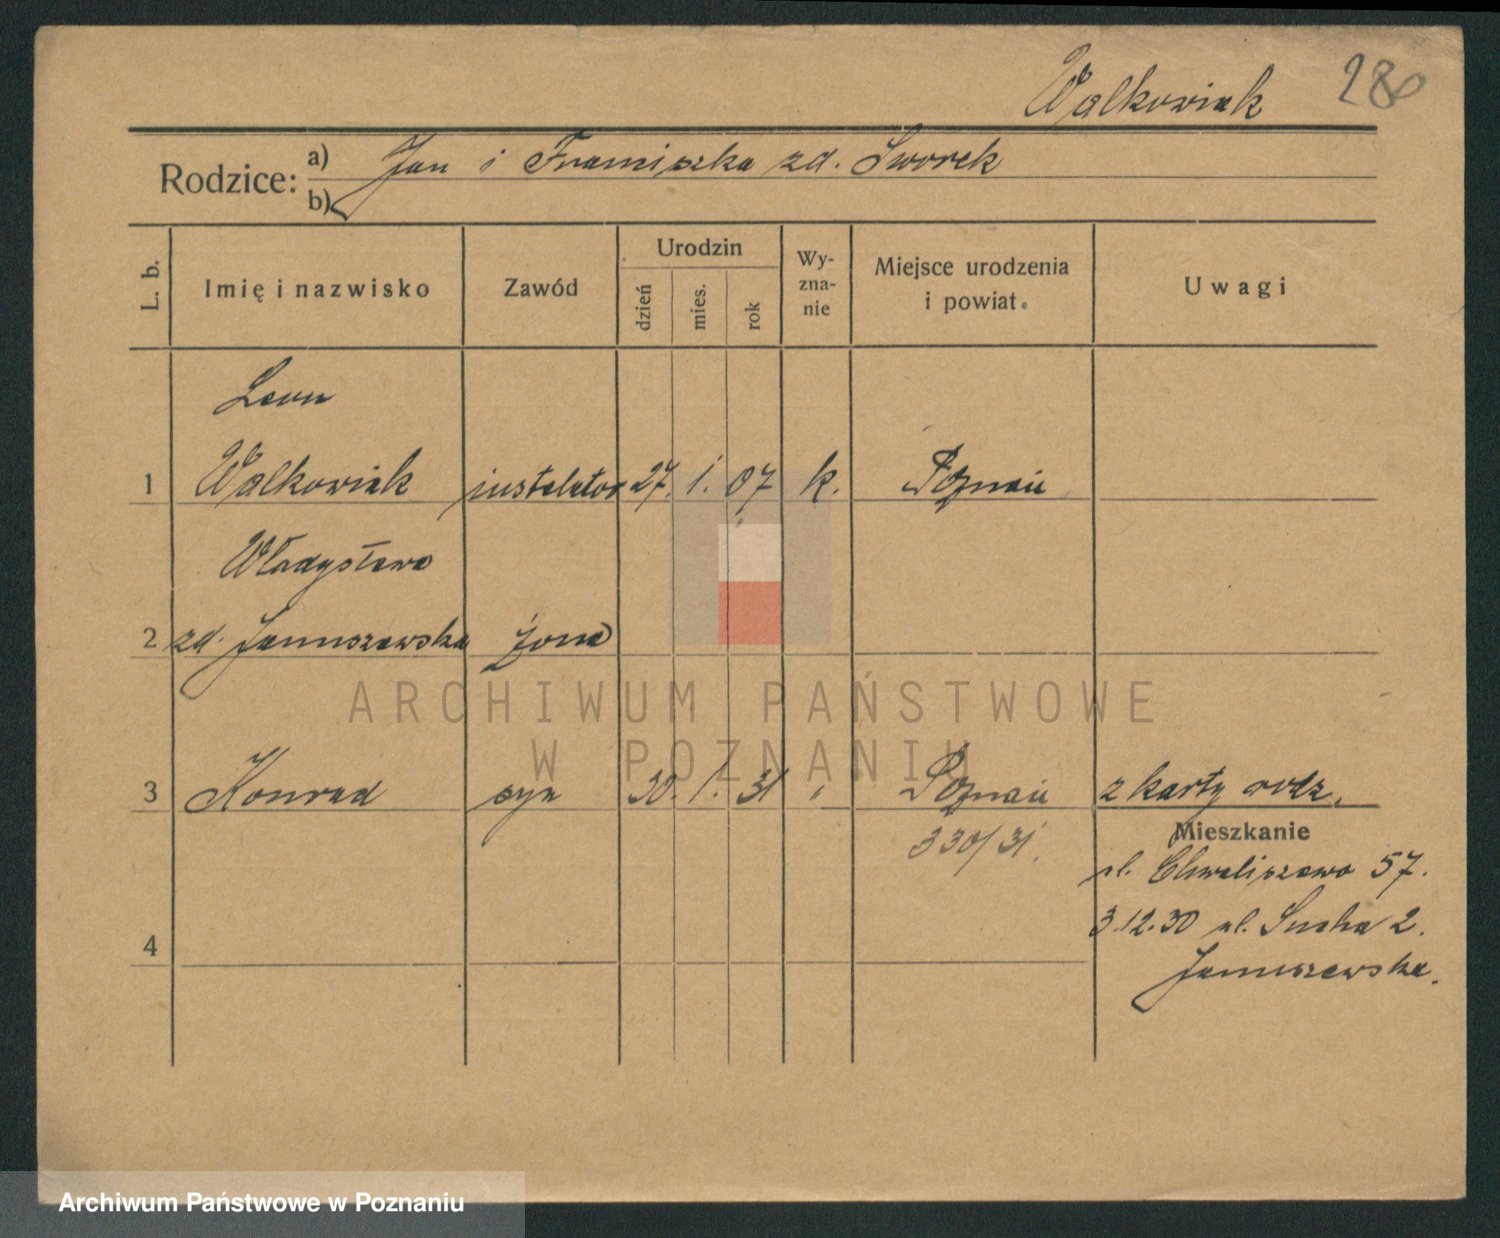 Walkowiak 280
Rodzice: a) Jan i Franciszka zd. Sworek
b)
L. b. Imię i nazwisko Zawód Urodzin dzień mies. rok Wyznanie Miejsce urodzenia i powiat. Uwagi
Leon
1 Walkowiak instalator 27. 1. 07 k. Poznań
Władysława
2 zd. Januszewska żona
ARCHIWUM PAŃSTWOWE
W POZNANIU
3 Konrad syn 30. 1. 31 " Poznań z karty rodz.
330/31. Mieszkanie
ul. Chwaliszewo 57.
3.12.30 ul. Sucha 2.
4
Januszewska.
Archiwum Państwowe w Poznaniu